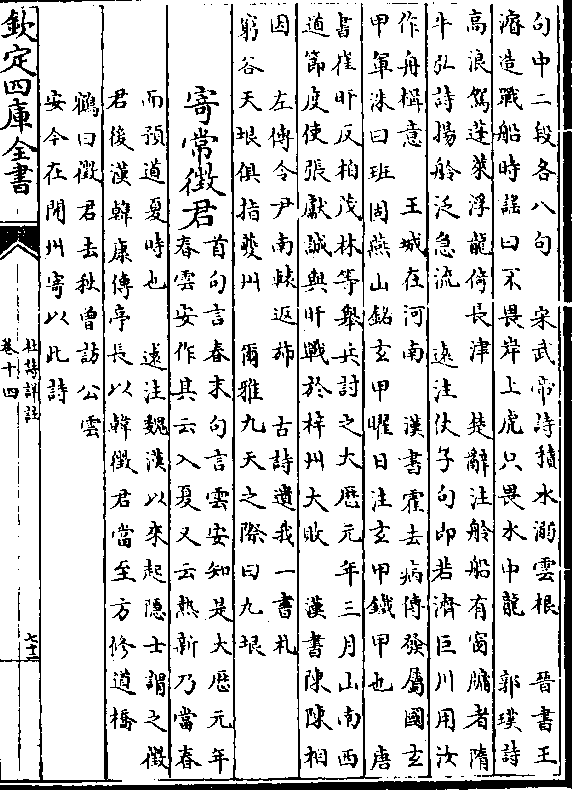 句中二段各八句　宋武帝詩積水溺雲根　晉書王
濬造戰船時謡曰不畏岸上虎只畏水中龍　郭璞詩
高浪駕蓬萊浮龍倚長津　楚辭注舲船有窗牖者隋
牛弘詩揚舲泛急流　遠注仗子句即若濟巨川用汝
作舟楫意　王城在河南　漢書霍去病傳發屬國玄
甲軍洙曰班固燕山銘玄甲曜日注玄甲鐵甲也　唐
書崔旰反柏茂林等舉兵討之大厯元年三月山南西
道節度使張獻誠與旰戰於梓州大敗　漢書陳陳相
因　左傳令尹南轅返斾　古詩遺我一書札
窮谷天垠俱指夔州　爾雅九天之際曰九垠
寄常徴君
首句言春末句言雲安知是大厯元年
春雲安作其云入夏又云熱新乃當春
而預道夏時也　遠注魏漢以來起隠士謂之徴
君後漢韓康傳亭長以韓徴君當至方修道橋
鶴曰徴君去秋曾訪公雲
安今在開州寄以此詩
欽定四庫全書
杜詩詳註
卷十四
七十二